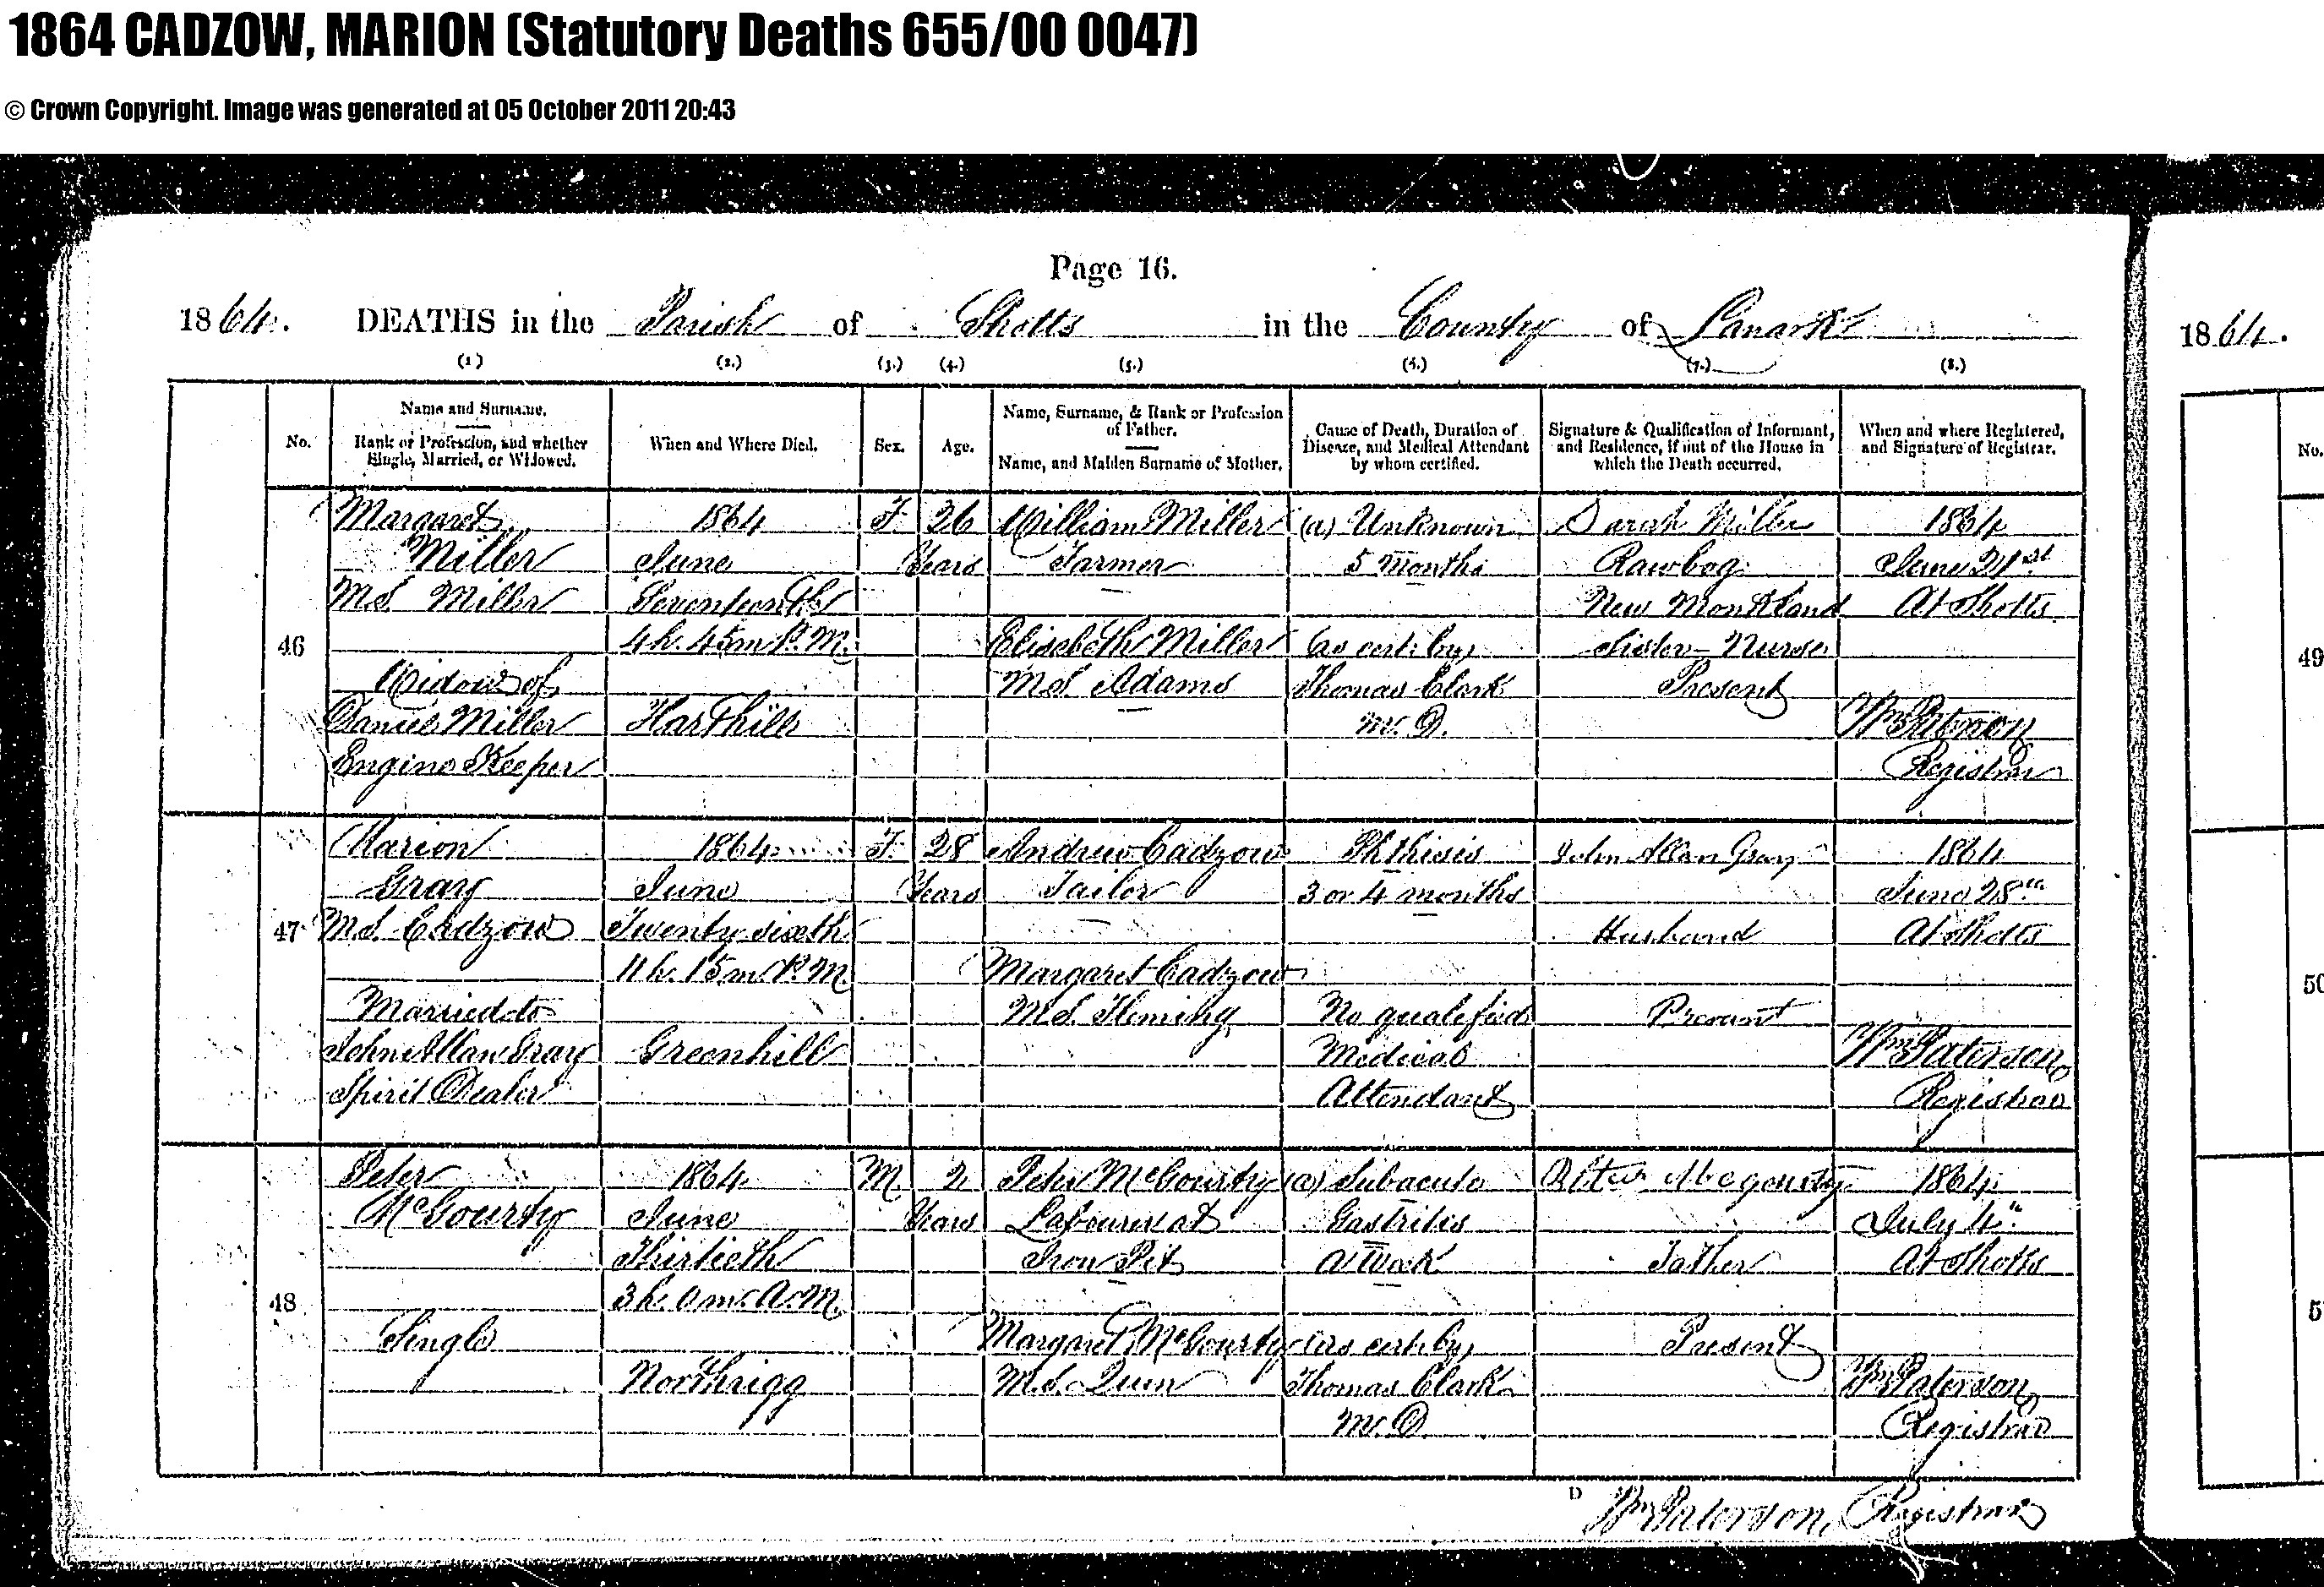 1864 CADZOW, MARION (Statutory Deaths 655/00 0047)
© Crown Copyright. Image was generated at 05 October 2011 20:43
Page 16.
1864. DEATHS in the Parish of Shotts in the County of Lanark
1864.
(1) (2.) (3.) (4.) (5.) (6.) (7.) (8.)
No.
Name and Surname.
Rank or Profession, and whether
Single, Married, or Widowed.
When and Where Died.
Sex.
Age.
Name, Surname, & Rank or Profession
of Father.
Name, and Maiden Surname of Mother.
Cause of Death, Duration of
Disease, and Medical Attendant
by whom certified.
Signature & Qualification of Informant,
and Residence, if out of the House in
which the Death occurred.
When and where Registered,
and Signature of Registrar.
No.
46
Margaret
Miller
M.S. Miller
Widow of
Daniel Miller
Engine Keeper
1864
June
Seventeenth
4h. 45m P.M.
Harthill
F
26
Years
William Miller
Farmer
Elisebeth Miller
M.S. Adams
(a) Unknown
5 Months
As cert. by
Thomas Clark
M.D.
Sarah Miller
Rawbog
New Monkland
Sister - Nurse
Present
1864
June 21st
At Shotts
Wm Paterson
Registrar
49
47
Marion
Gray
M.S. Cadzow
Married to
John Allan Gray
Spirit Dealer
1864
June
Twenty sixth
11h. 15m P.M.
Greenhill
F
28
Years
Andrew Cadzow
Tailor
Margaret Cadzow
M.S. Fleming
Phthisis
3 or 4 months
No qualified
Medical
Attendant
John Allan Gray
Husband
Present
1864
June 28th
At Shotts
Wm Paterson
Registrar
50
48
Peter
McGourty
Single
1864
June
Thirtieth
3h. 0m. A.M.
Northrigg
M
2
Years
Peter McGourty
Labourer at
Iron Pit
Margaret McGourty
M.S. Quin
(a) Subacute
Gastritis
A Week
As cert. by
Thomas Clark
M.D.
Father
Present
1864
July 4th
At Shotts
Wm Paterson
Registrar
5
D
Wm Paterson, Registrar